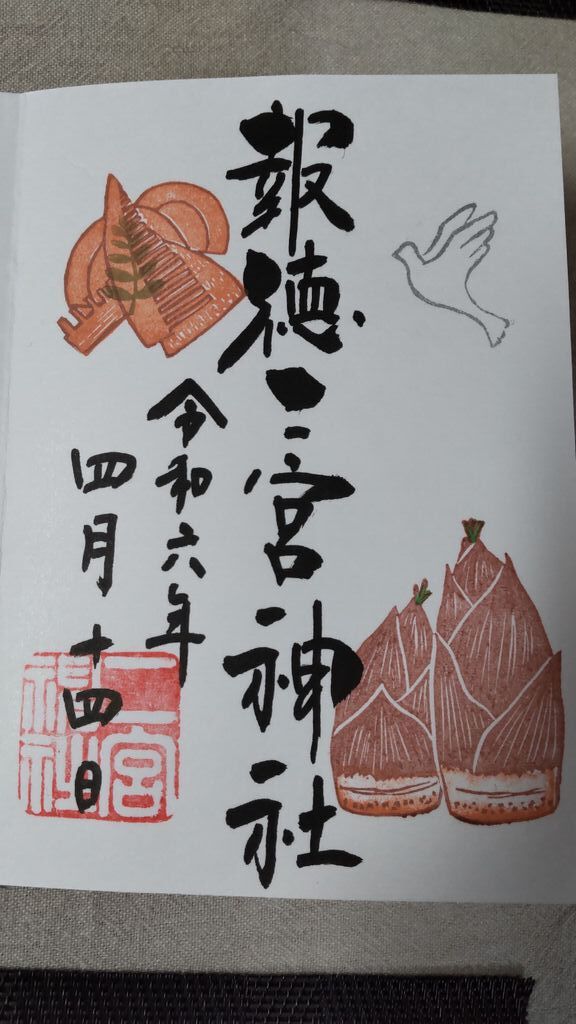 報徳二宮神社
令和六年
四月十四日
二宮
神社